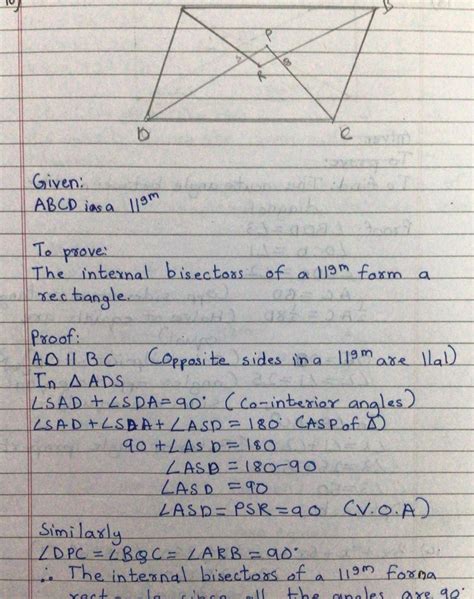 B
P
R
D
C
Given:
ABCD is a ||gm
To prove:
The internal bisectors of a ||gm form a
rectangle.
Proof:
AD || BC (opposite sides in a ||gm are ||al)
In △ ADS
∠SAD + ∠SDA = 90° (Co-interior angles)
∠SAD + ∠SDA + ∠ASD = 180° (ASP of △)
90 + ∠ASD = 180
∠ASD = 180-90
∠ASD = 90
∠ASD = PSR = 90 (V.O.A)
Similarly
∠DPC = ∠BQC = ∠ARB = 90°
∴ The internal bisectors of a ||gm form a
since all the angles are 90°